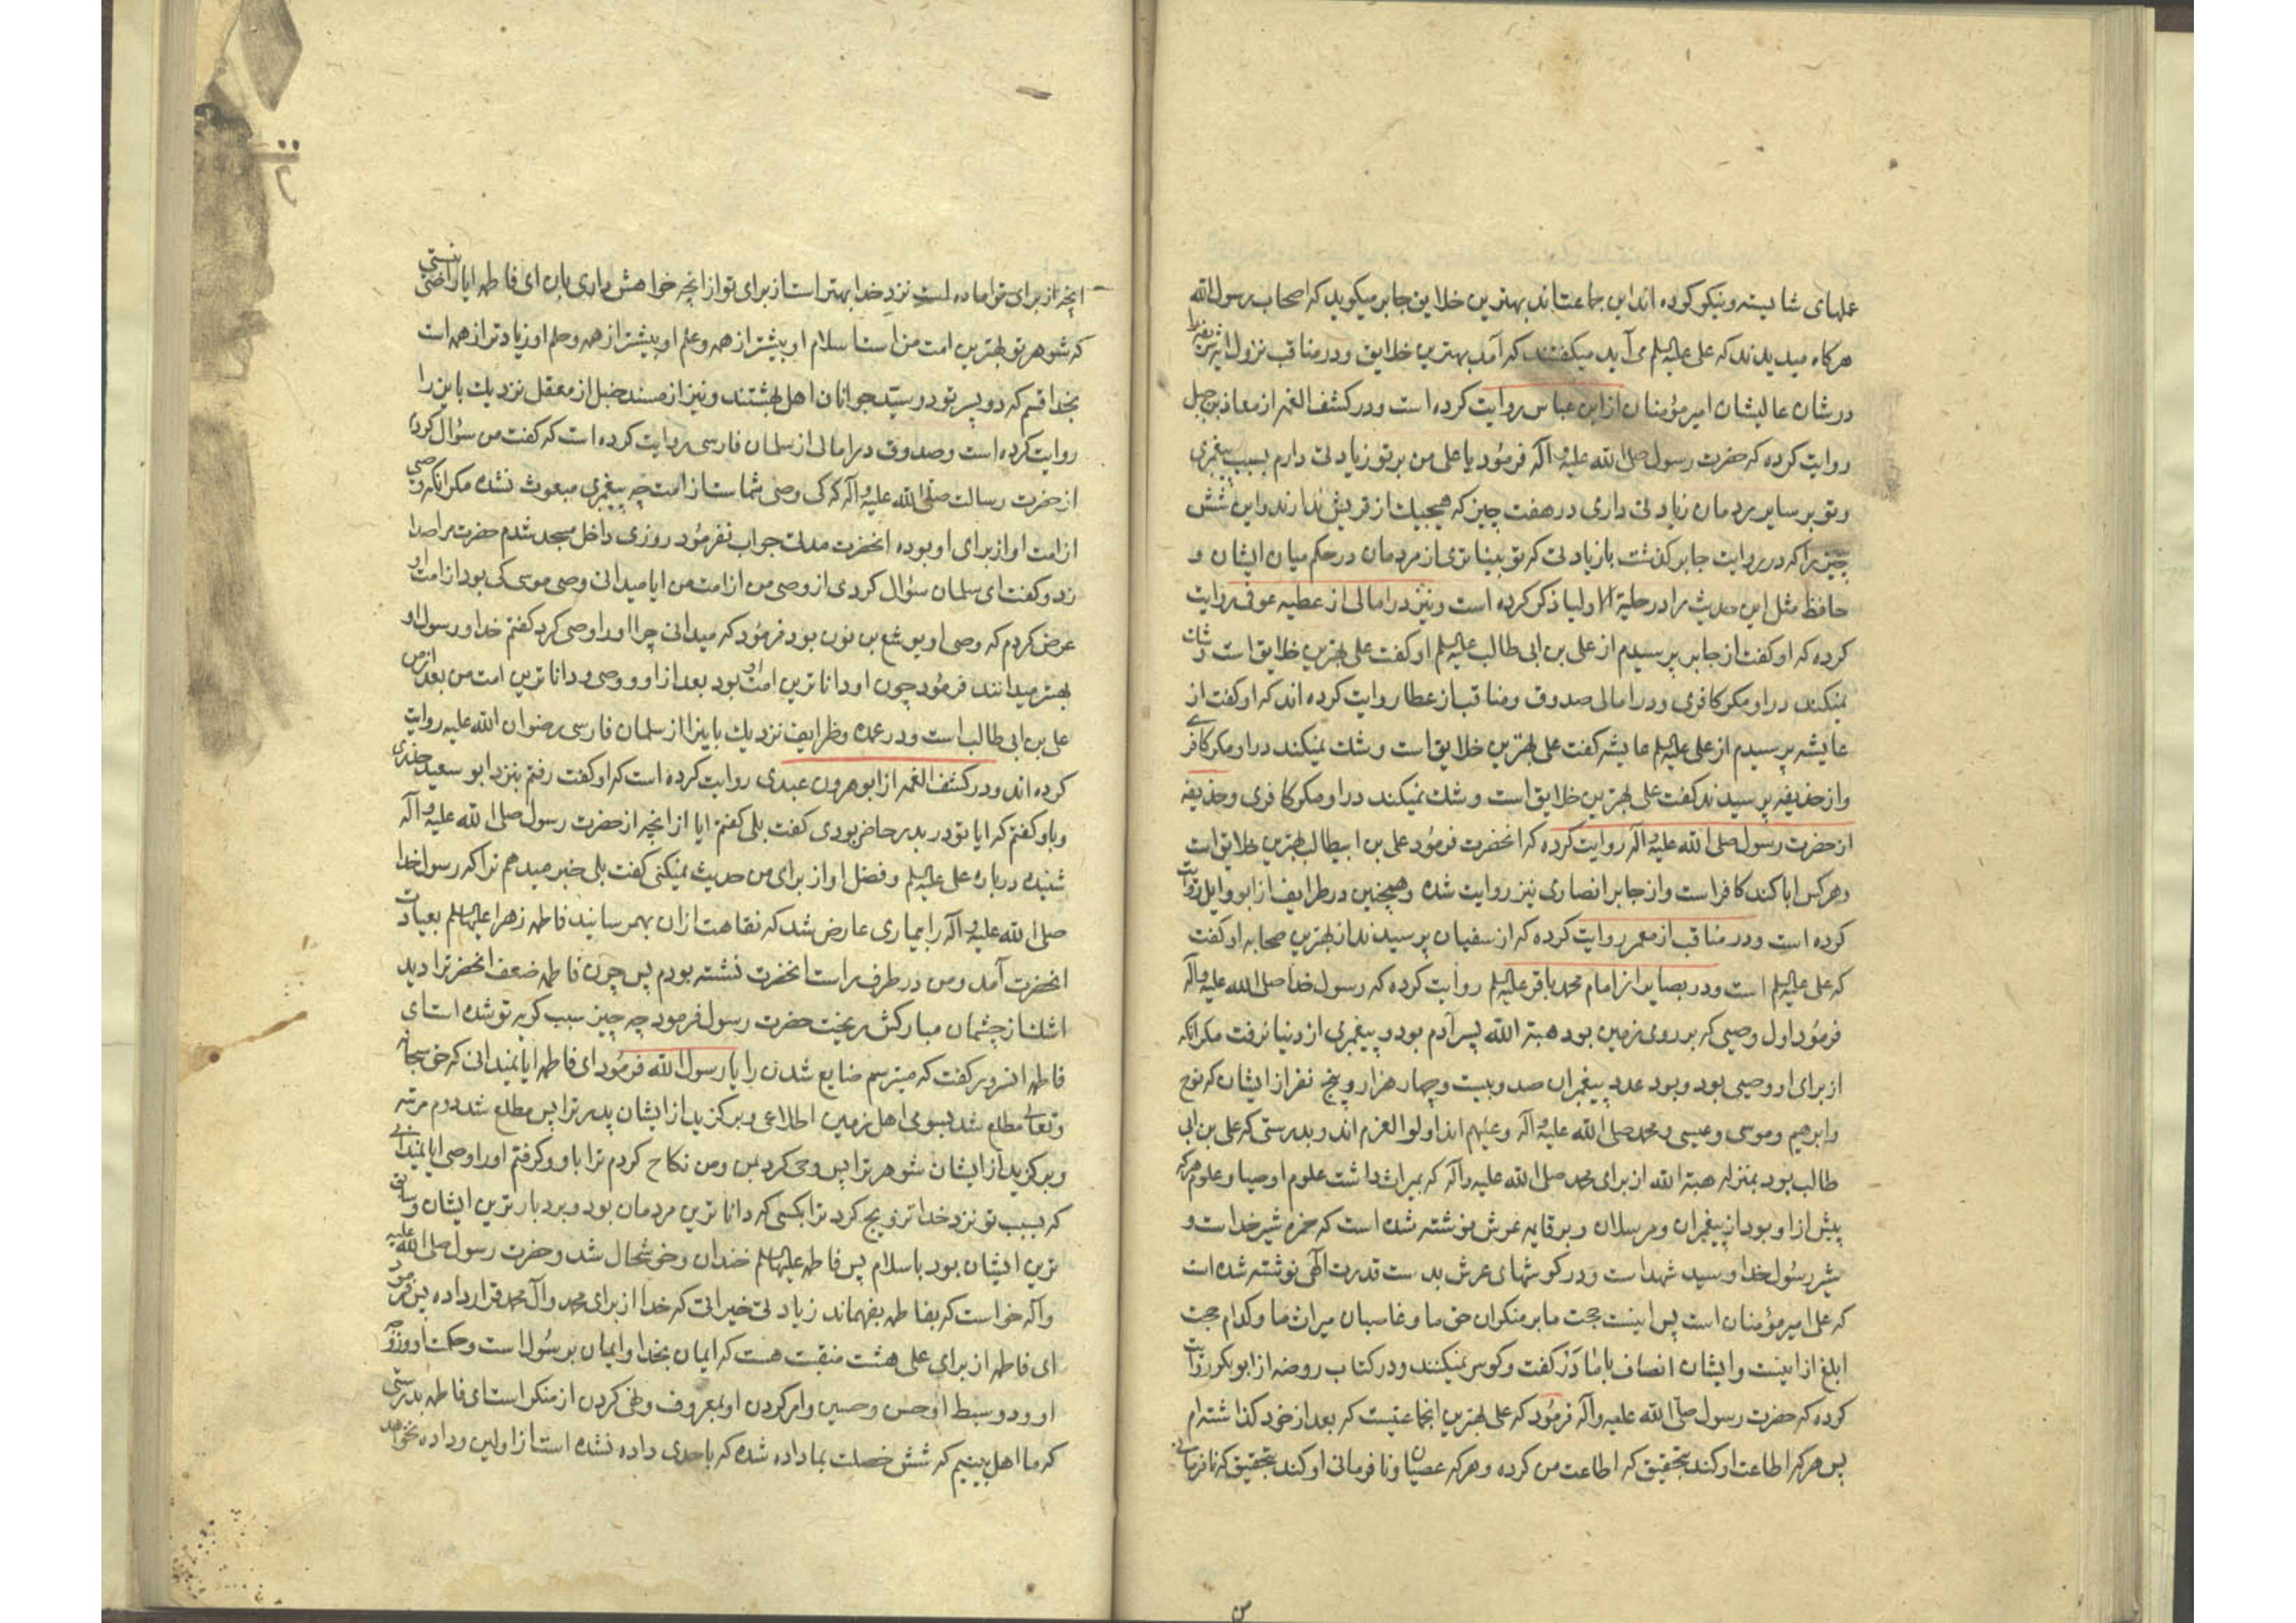 عملهای شایسته و نیکو کرده اند این جماعتاند بهترین خلایق جابر میکوید که اصحاب رسول الله
هرکاه میدیدند که علی علیه السلم می آید میکفتند که آمد بهترین خلایق و در مناقب نزول این
در شان عالیشان امیر مؤمنان از ابن عباس روایت کرده است و در کشف الغمه از معاذ بن جبل
روایت کرده که حضرت رسول صلی الله علیه و آله فرمود یا علی من بر تو زیادتی دارم بسبب پیغمبری
و تو بر سایر مردمان زیادتی داری در هفت چیز که هیچیك از قریش ندارند و این شش
چیز را که در روایت جابر کذشت با زیادتی که تو بیناتری از مردمان در حکم میان ایشان و
حافظ مثل این حدیث را در حلیة الاولیا ذکر کرده است و نیز در امالی از عطیه عوفی روایت
کرده که او کفت از جابر پرسیدم از علی بن ابی طالب علیه السلم او کفت علی بهترین خلایق است و شك
نمیکند در او مکر کافری و در امالی صدوق و مناقب از عطا روایت کرده اند که او کفت از
عایشه پرسیدم از علی علیه السلم عایشه کفت علی بهترین خلایق است و شك نمیکند در او مکر کافری
و از حذیفه پرسیدند کفت علی بهترین خلایق است و شك نمیکند در او مکر کافری و حذیفه
از حضرت رسول صلی الله علیه و آله روایت کرده که انحضرت فرمود علی بن ابیطالب بهترین خلایق است
و هر کس ابا کند کافر است و از جابر انصاری نیز روایت شده و همچنین در طرایف از ابو وایل روایت
کرده است و در مناقب از معمر روایت کرده که از سفیان پرسیدند از بهترین صحابه او کفت
که علی علیه السلم است و در بصایر از امام محمد باقر علیه السلم روایت کرده که رسول خدا صلی الله علیه و آله
فرمود اول وصیی که بر روی زمین بود هبة الله پسر آدم بود و پیغمبری از دنیا نرفت مکر انکه
از برای او وصیی بود و بود عدد پیغمبران صد و بیست و چهار هزار و پنج نفر از ایشان که نوح
و ابرهیم و موسی و عیسی و محمد صلی الله علیه و آله و علیهم اند اولو العزم اند و بدرستی که علی بن ابی
طالب بود بمنزله هبة الله از برای محمد صلی الله علیه و آله که بمیراث داشت علوم اوصیا و علوم هر که
پیش از او بود از پیغمبران و مرسلان و بر قایمه عرش نوشته شده است که حمزه شیر خدا است و
شیر رسول خدا و سید شهدا است و در کوشهای عرش بدست قدرت آلهی نوشته شده است
که علی امیر مؤمنان است پس اینست حجت ما بر منکران حق ما و غاصبان میراث ما و کدام حجت
ابلغ از اینست و ایشان انصاف با ما در کفت و کو سر نمیکنند و در کتاب روضه از ابو بکر روایت
کرده که حضرت رسول صلی الله علیه و آله فرمود که علی بهترین انجماعتیست که بعد از خود کذاشته ام
پس هر که اطاعت او کند بتحقیق که اطاعت من کرده و هر که عصیان و نافرمانی او کند بتحقیق که نافرمانی
انچه از برای تو اماده است نزد خدا بهتر است از برای تو از انچه خواهش داری بان ای فاطمه ایا راضی نیستی
که شوهر تو بهترین امت من است اسلام او پیشتر از همه و علم او بیشتر از همه و حلم او زیادتر از همه است
بخدا قسم که دو پسر تو دو سید جوانان اهل بهشتند و نیز از مسند حنبل از معقل نزدیك باین را
روایت کرده است و صدوق در امالی از سلمان فارسی روایت کرده است که کفت من سؤال کردم
از حضرت رسالت صلی الله علیه و آله که کی وصی شما است از امت چه پیغمبری مبعوث نشده مکر انکه وصی
از امت او از برای او بوده انحضرت مدتی جواب نفرمود روزی داخل مسجد شدم حضرت مرا صدا
زد و کفت ای سلمان سؤال کردی از وصی من از امت من ایا میدانی وصی موسی کی بود از امت او
عرض کردم که وصی او یوشع بن نون بود فرمود که میدانی چرا او را وصی کرد کفتم خدا و رسول او
بهتر میدانند فرمود چون او داناترین امت او بود بعد از او و وصی و داناترین امت من بعد از من
علی بن ابی طالب است و در عمده و طرایف نزدیك باینرا از سلمان فارسی رضوان الله علیه روایت
کرده اند و در کشف الغمه از ابو هرون عبدی روایت کرده است که او کفت رفتم بنزد ابو سعید خدری
و باو کفتم که ایا تو در بدر حاضر بودی کفت بلی کفتم ایا از انچه از حضرت رسول صلی الله علیه و آله
شنیده در باره علی علیه السلم و فضل او از برای من حدیث نمیکنی کفت بلی خبر میدهم ترا که رسول خدا
صلی الله علیه و آله را بیماری عارض شد که نقاهت ازان بهمرسانید فاطمه زهرا علیها السلم بعیادت
انحضرت آمد و من در طرف راست انحضرت نشسته بودم پس چون فاطمه ضعف انحضرترا دید
اشك از چشمان مبارکش ریخت حضرت رسول فرمود چه چیز سبب کریه تو شده است ای
فاطمه انسرور کفت که میترسم ضایع شدن را یا رسول الله فرمود ای فاطمه ایا نمیدانی که حق سبحانه
و تعالی مطلع شد بسوی اهل زمین اطلاعی و برکزید از ایشان پدر ترا پس مطلع شد دوم مرتبه
و برکزید از ایشان شوهر ترا پس وحی کرد بمن و من نکاح کردم ترا باو و کرفتم او را وصی ایا نمیدانی
که بسبب تو نزد خدا تزویج کرد ترا بکسی که داناترین مردمان بود و بردبارترین ایشان و سابق
ترین ایشان بود باسلام پس فاطمه علیها السلم خندان و خوشحال شد و حضرت رسول صلی الله علیه
و آله خواست که بفاطمه بفهماند زیادتی خیراتی که خدا از برای محمد و آل محمد قرار داده پس فرمود
ای فاطمه از برای علی هشت منقبت هست که ایمان بخدا و ایمان برسول است و حکمت او و زوجه
او و دو سبط او حسن و حسین و امر کردن او بمعروف و نهی کردن از منکر است ای فاطمه بدرستی
که ما اهل بیتیم که شش خصلت بما داده شده که باحدی داده نشده است از اولین و داده نخواهد